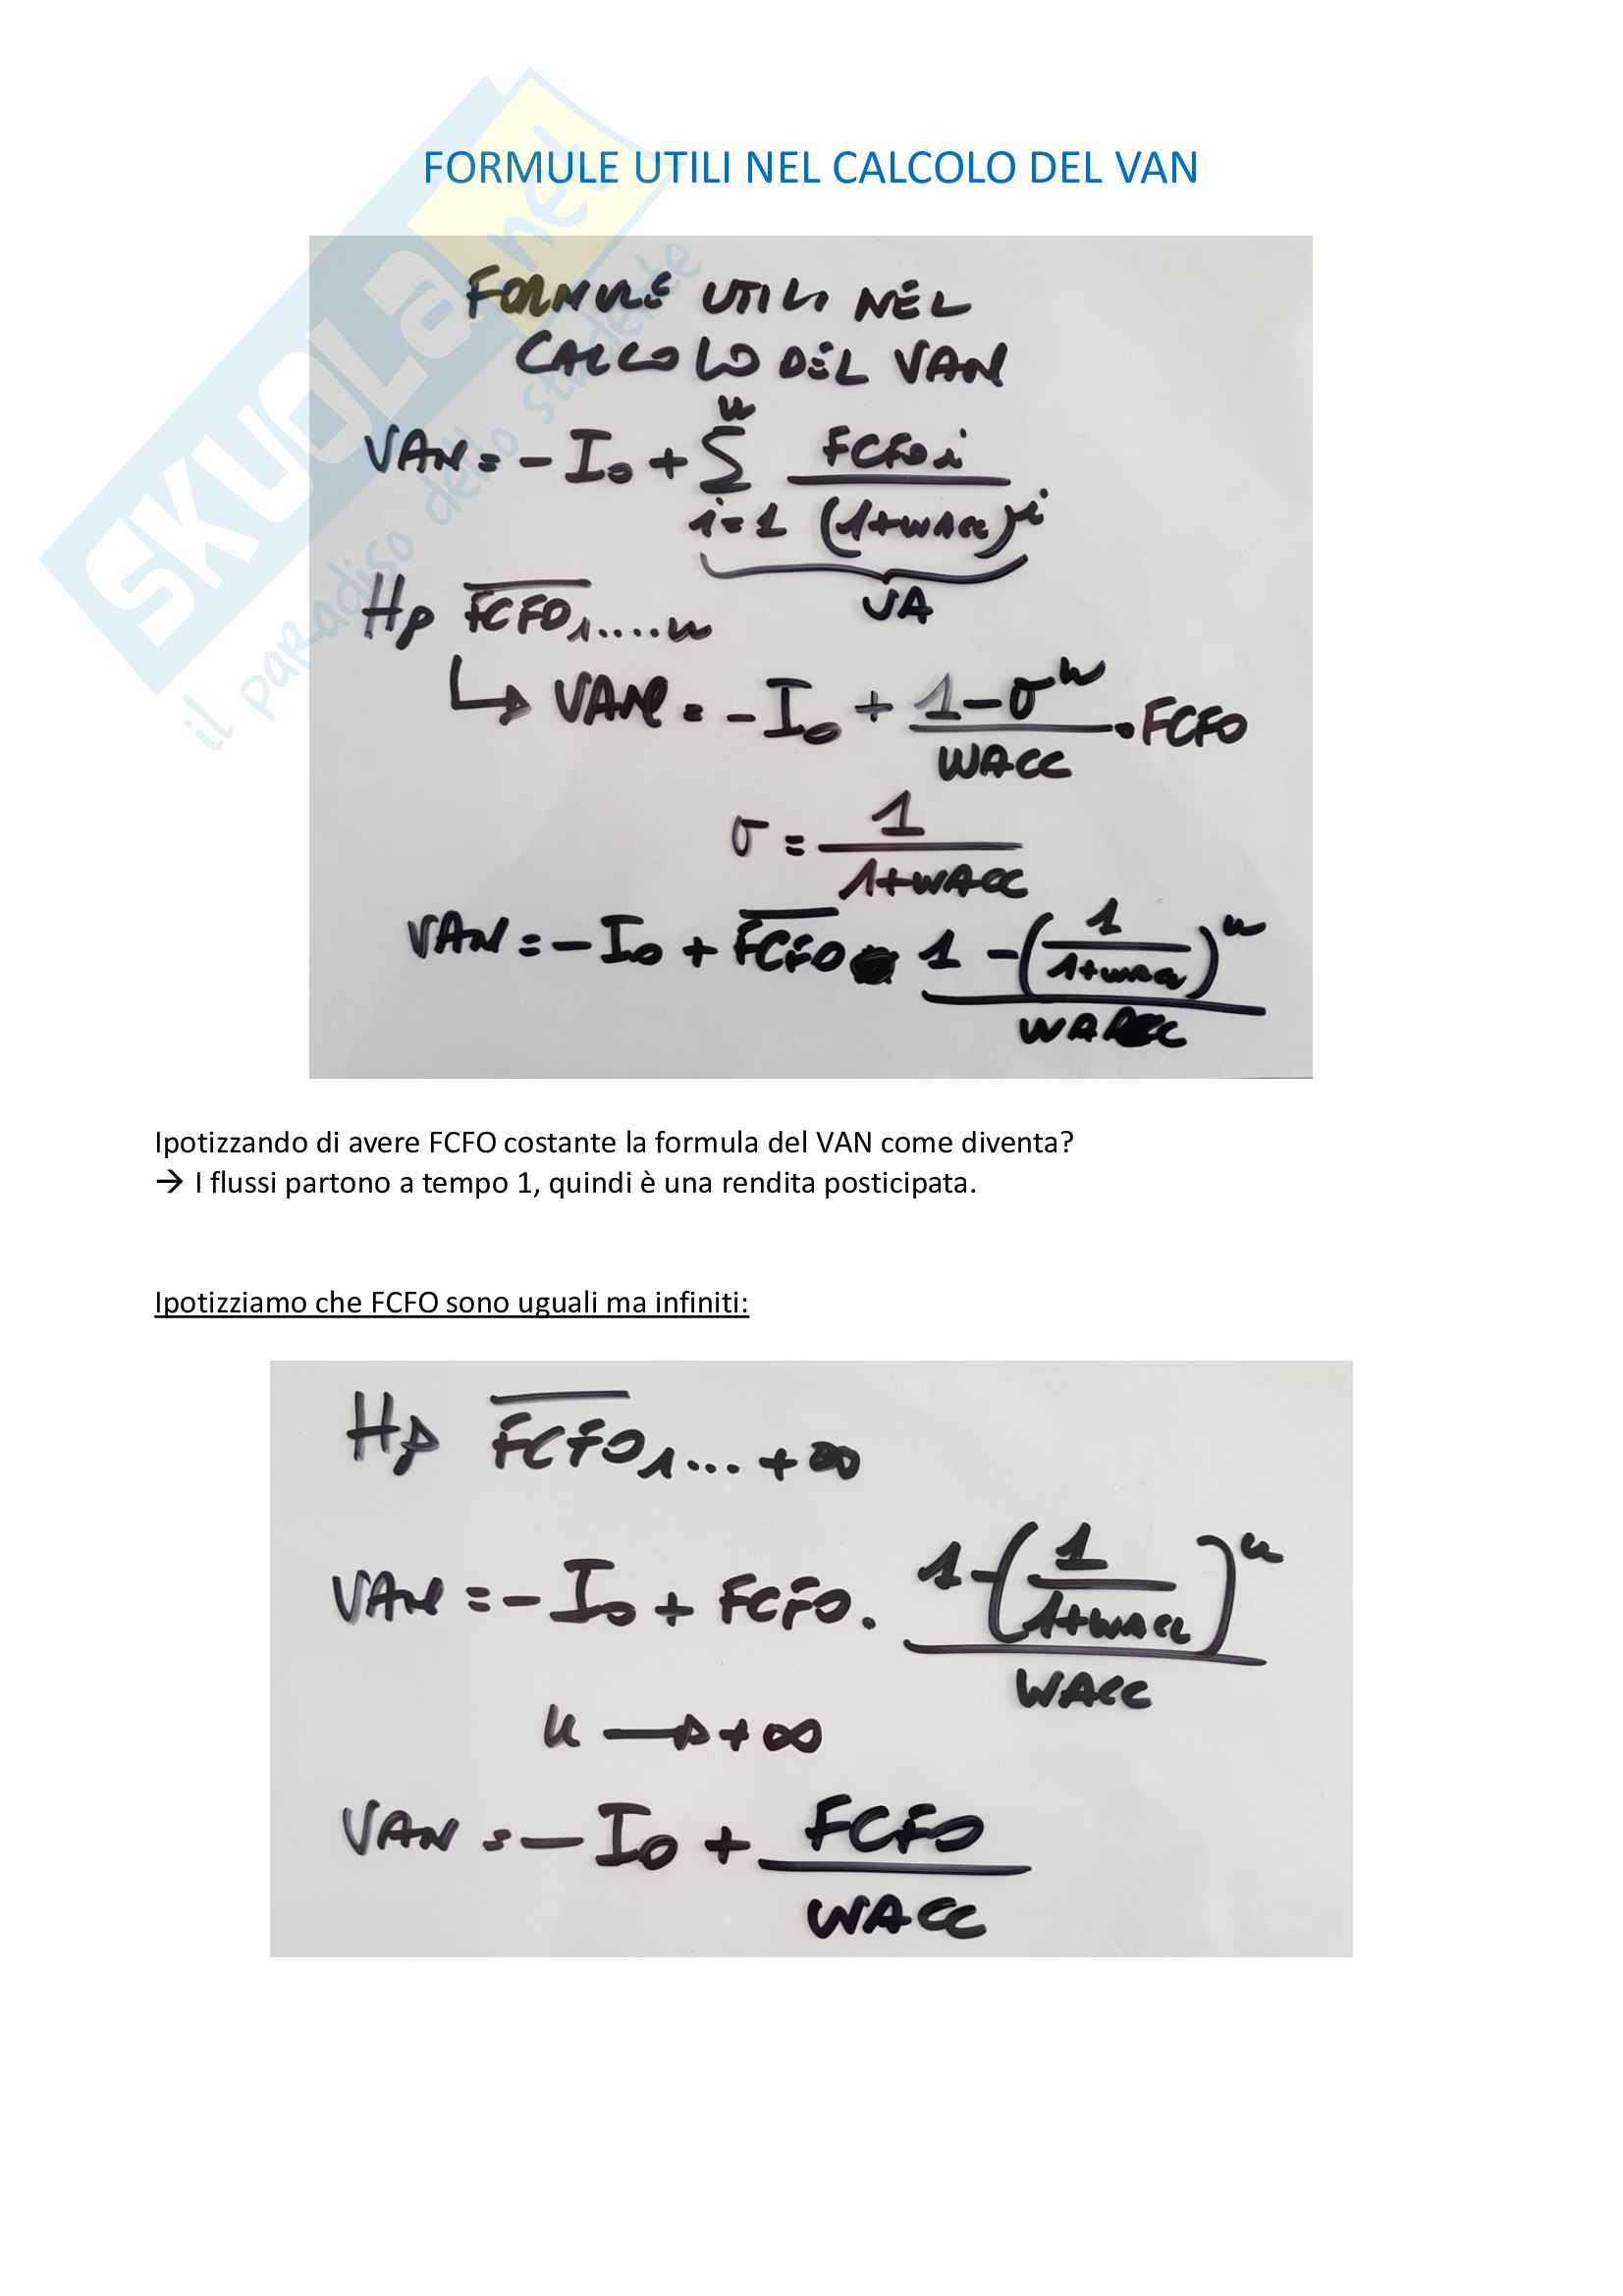 FORMULE UTILI NEL CALCOLO DEL VAN
SKUOLA.net
il paradiso dello studente
FORMULE UTILI NEL
CALCOLO DEL VAN
VAN = - I₀ + Σ (i=1 … n) FCFOi / (1+WACC)^i
VA
Hp FCFO̅ 1....n
↳ VAN = - I₀ + (1-σ^n) / WACC · FCFO
σ = 1 / (1+WACC)
VAN = - I₀ + FCFO̅ · (1 - (1 / (1+WACC))^n) / WACC
Ipotizzando di avere FCFO costante la formula del VAN come diventa?
→ I flussi partono a tempo 1, quindi è una rendita posticipata.
Ipotizziamo che FCFO sono uguali ma infiniti:
Hp FCFO̅ 1... +∞
VAN = - I₀ + FCFO · (1 - (1 / (1+WACC))^n) / WACC
n → +∞
VAN = - I₀ + FCFO / WACC